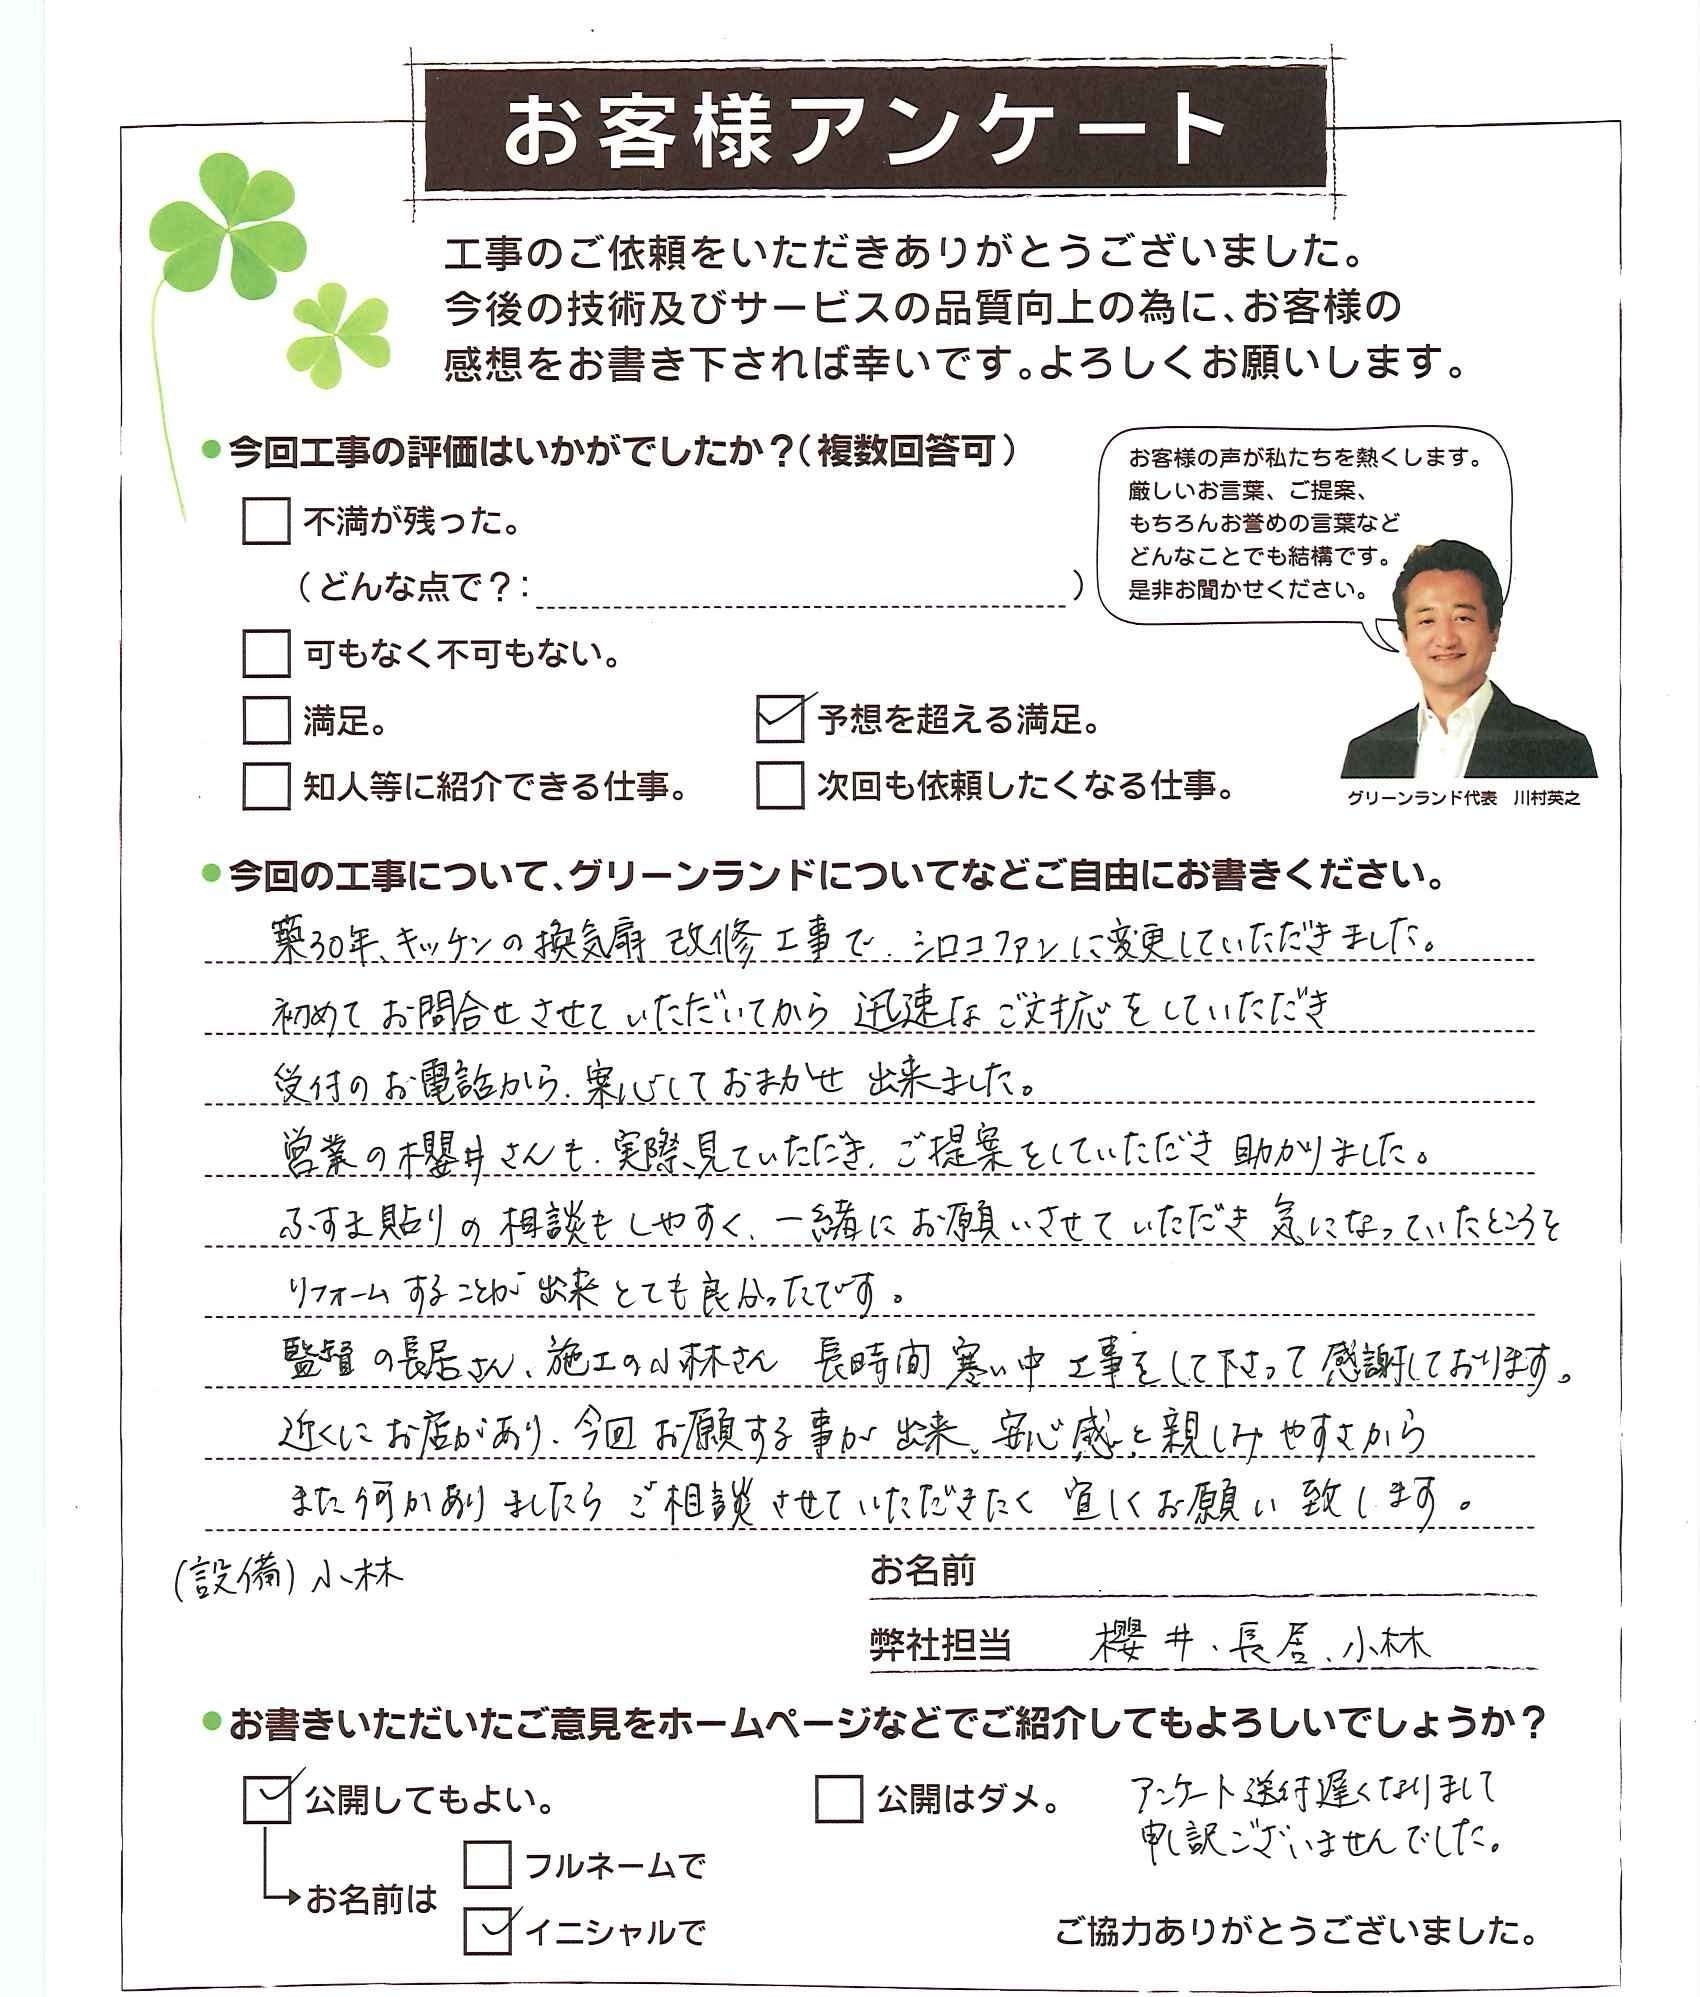 お客様アンケート
工事のご依頼をいただきありがとうございました。
今後の技術及びサービスの品質向上の為に、お客様の
感想をお書き下されば幸いです。よろしくお願いします。
●今回工事の評価はいかがでしたか？（複数回答可）
不満が残った。
（どんな点で？：　）
可もなく不可もない。
満足。
予想を超える満足。
知人等に紹介できる仕事。
次回も依頼したくなる仕事。
お客様の声が私たちを熱くします。
厳しいお言葉、ご提案、
もちろんお誉めの言葉など
どんなことでも結構です。
是非お聞かせください。
グリーンランド代表　川村英之
●今回の工事について、グリーンランドについてなどご自由にお書きください。
築30年、キッチンの換気扇 改修工事で、シロコファンに変更していただきました。
初めてお問合せさせていただいてから 迅速なご対応をしていただき
受付のお電話から、案心しておまかせ 出来ました。
営業の櫻井さんも、実際、見ていただき、ご提案をしていただき 助かりました。
ふすま貼りの相談もしやすく、一緒にお願いさせていただき 気になっていたところを
リフォームすることが出来とても良かったです。
監督の長居さん、施工の小林さん 長時間 寒い中 工事をして下さって感謝しております。
近くにお店があり、今回お願する事が出来、安心感と親しみやすさから
また何かありましたらご相談させていただきたく 宜しくお願い致します。
(設備)小林
お名前
弊社担当　櫻井、長居、小林
●お書きいただいたご意見をホームページなどでご紹介してもよろしいでしょうか？
公開してもよい。
公開はダメ。
アンケート送付遅くなりまして
申し訳ございませんでした。
お名前は
フルネームで
イニシャルで
ご協力ありがとうございました。